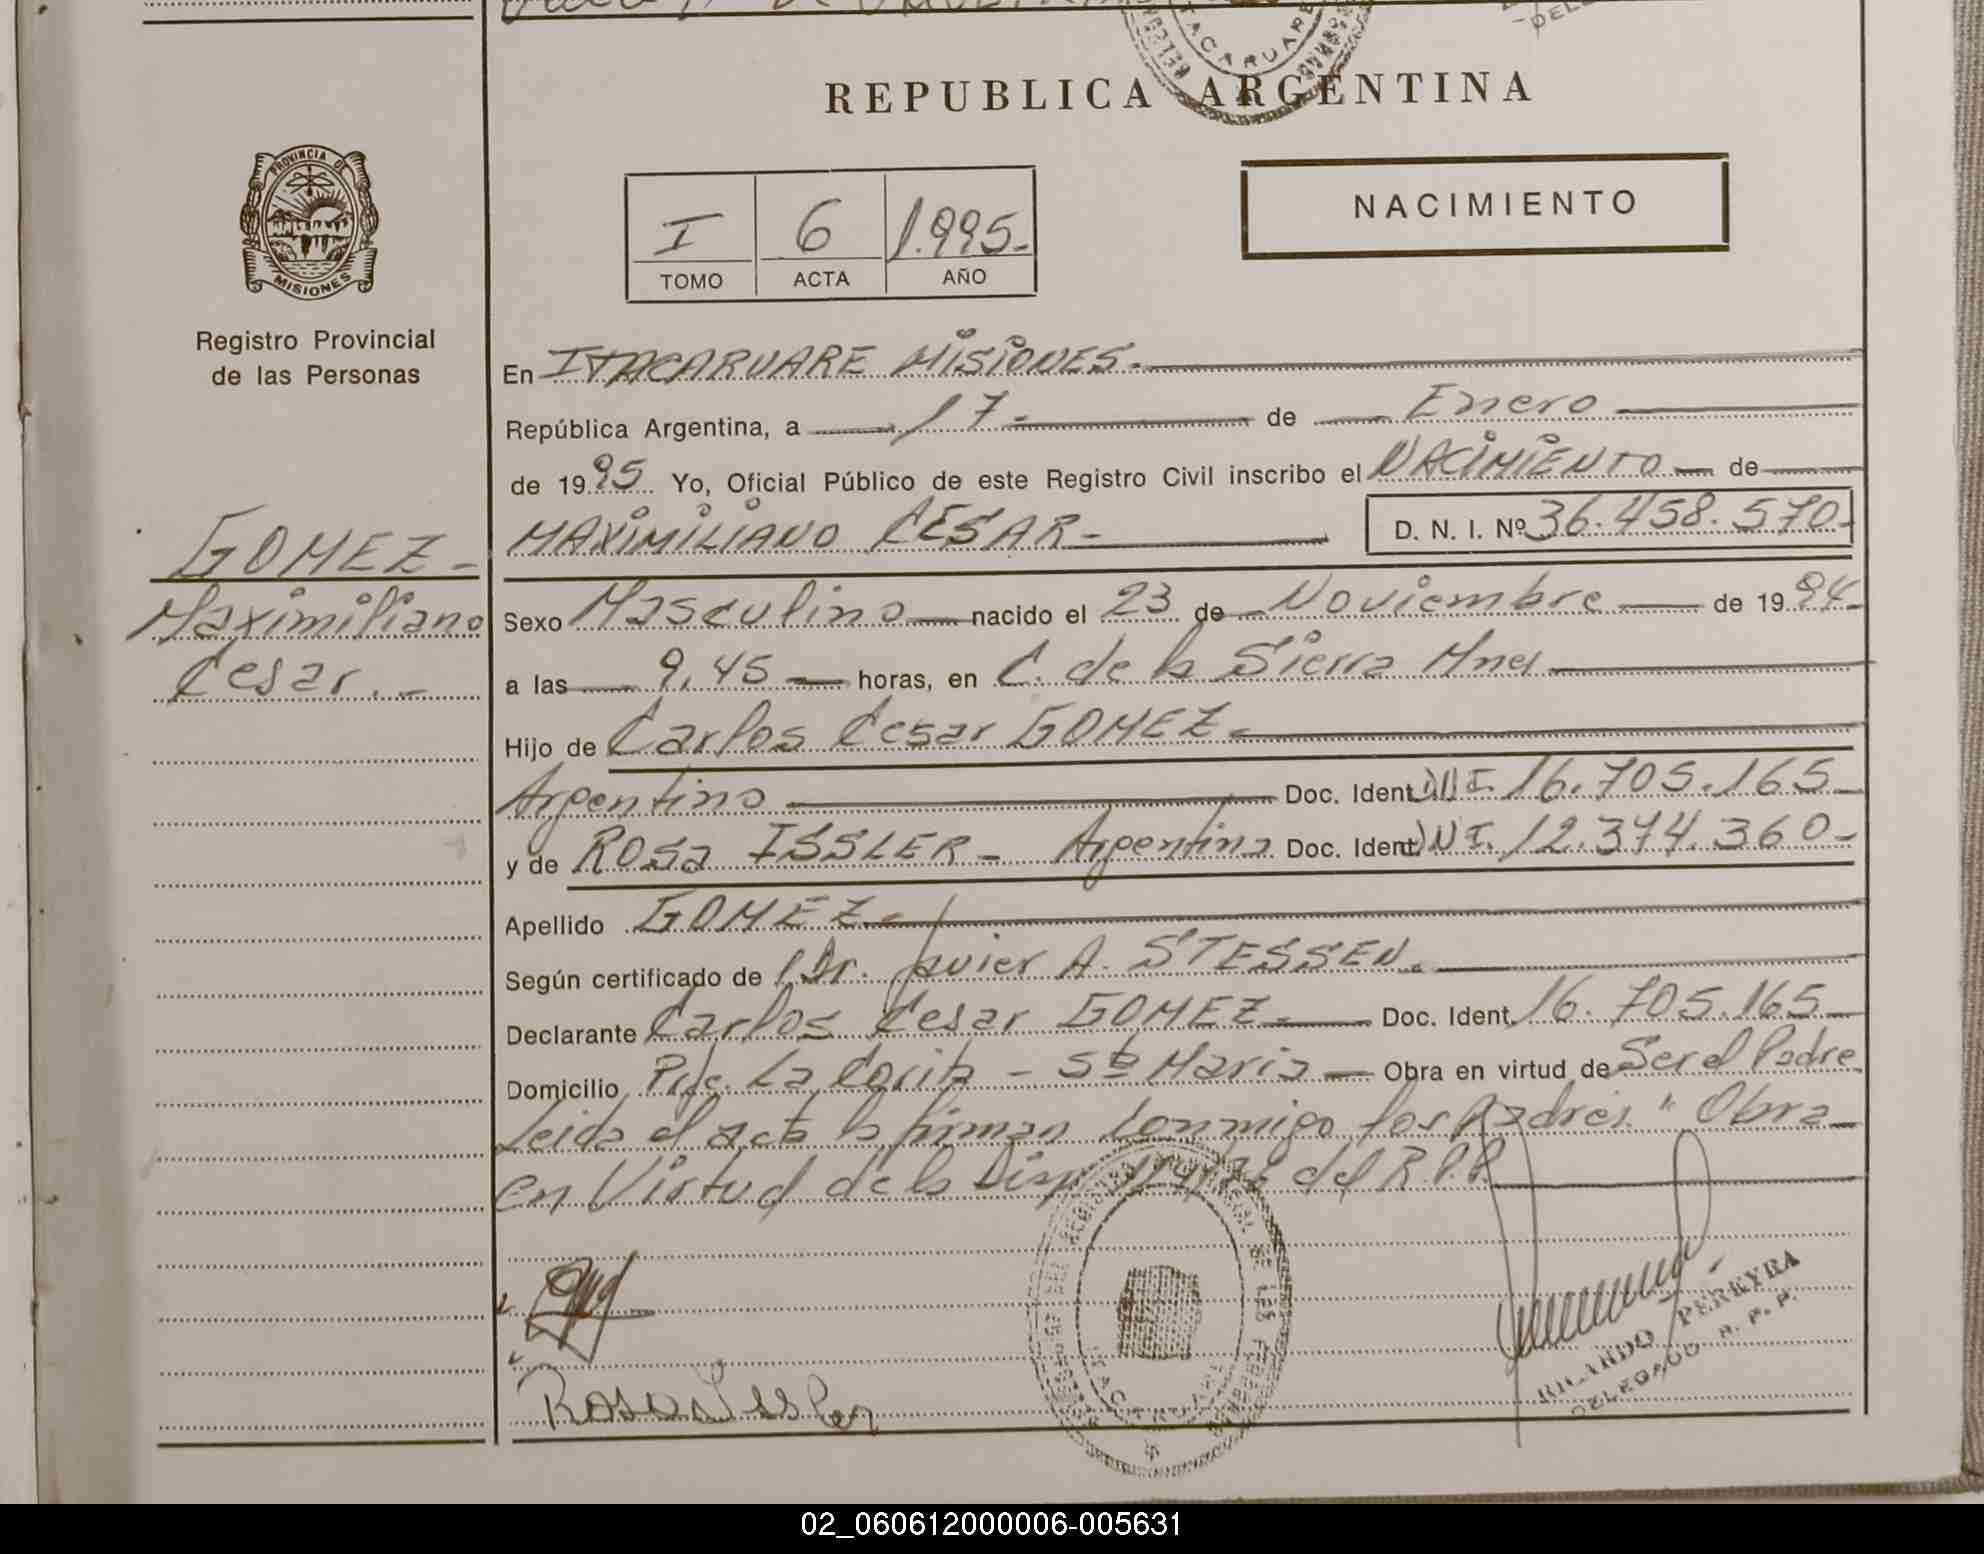 REPUBLICA ARGENTINA
ITACARUARE
PROVINCIA DE
MISIONES
Registro Provincial
de las Personas
I 6 1.995-
TOMO ACTA AÑO
NACIMIENTO
En ITACARUARE MISIONES.-
República Argentina, a 17- de Enero
de 1995 Yo, Oficial Público de este Registro Civil inscribo el NACIMIENTO de
MAXIMILIANO CESAR- D. N. I. Nº 36.458.570-
GOMEZ-
Maximiliano
Cesar.-
Sexo Masculino nacido el 23 de Noviembre de 1994-
a las 9,45 horas, en C. de la Sierra Mnes
Hijo de Carlos Cesar GOMEZ-
Argentino Doc. Ident. DNI. 16.705.165-
y de Rosa ISSLER- Argentina Doc. Ident. DNI. 12.374.360-
Apellido GOMEZ-
Según certificado de Dr. Javier A. STESSEN.
Declarante Carlos Cesar GOMEZ- Doc. Ident. 16.705.165-
Domicilio Pje. La Corita - Sta Maria Obra en virtud de Ser el Padre
Leida el acta la firman conmigo los Padres." Obra
en Virtud de la Disp. del R.P.P.
Rosa Issler
ITACARUARE
RICARDO PEREYRA
DELEGADO R. P. P.
02_060612000006-005631